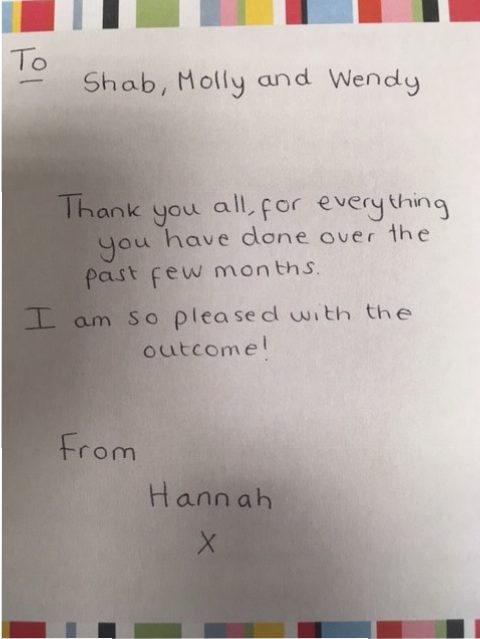 To
Shab, Molly and Wendy
Thank you all, for everything
you have done over the
past few months.
I am so pleased with the
outcome!
From
Hannah
X